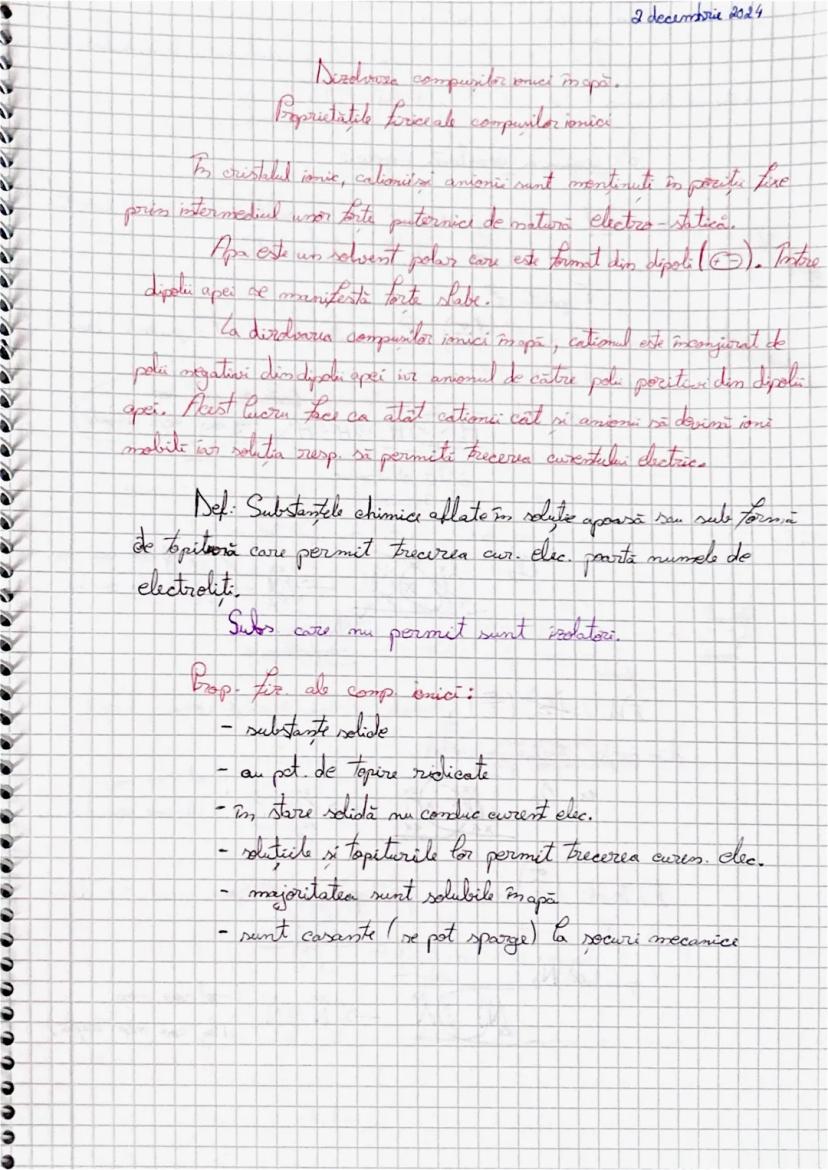 2 decembrie 2024
Dizolvarea compușilor ionici în apă.
Proprietățile fizice ale compușilor ionici
În cristalul ionic, cationii și anionii sunt menținuți în poziții fixe
prin intermediul unor forțe puternice de natură electro-statică.
Apa este un solvent polar care este format din dipoli (+ -). Între
dipolii apei se manifestă forțe slabe.
La dizolvarea compușilor ionici în apă, cationul este înconjurat de
polii negativi din dipolii apei iar anionul de către polii pozitivi din dipolii
apei. Acest lucru face ca atât cationii cât și anionii să devină ioni
mobili iar soluția resp. să permită trecerea curentului electric.
Def.: Substanțele chimice aflate în soluție apoasă sau sub formă
de topitură care permit trecerea cur. elec. poartă numele de
electroliți.
Subs care nu permit sunt izolatori.
Prop. fiz. ale comp ionici:
- substanțe solide
- au pct. de topire ridicate
- în stare solidă nu conduc curent elec.
- soluțiile și topiturile lor permit trecerea curen. elec.
- majoritatea sunt solubile în apă
- sunt casante (se pot sparge) la șocuri mecanice